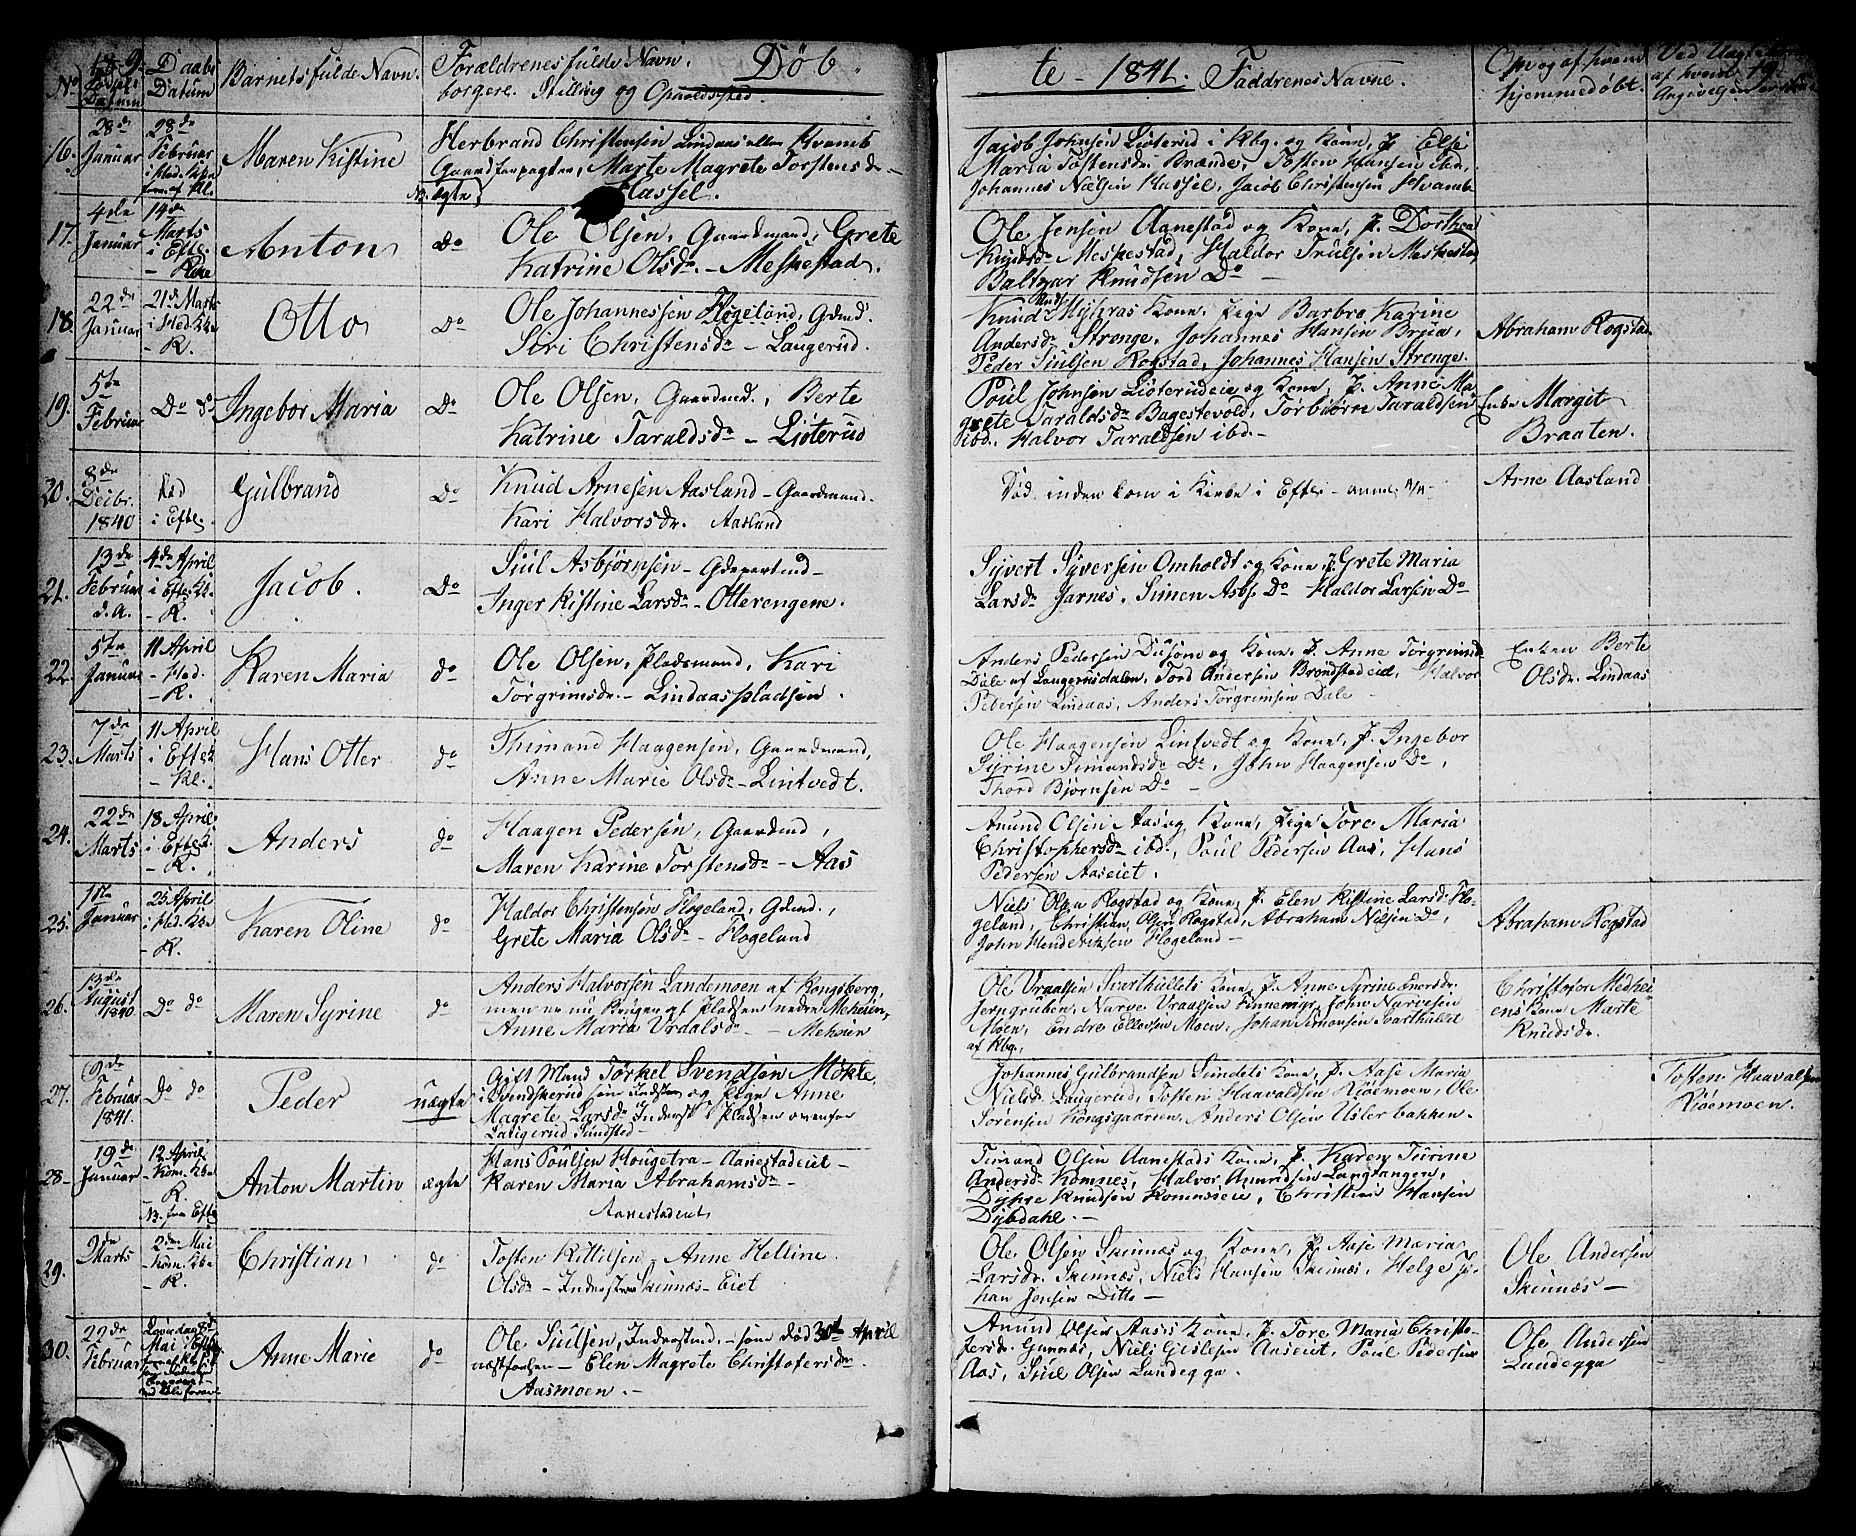 Døb
te - 1841.
No
Daabs
Datum
Barnets fulde Navn.
Forældrenes fulde Navn.
Stilling og Opholdssted.
Faddrenes Navne.
Om og af hvem
hjemmedøbt.
16.
28de
Januar
28de
Februar
Maren Kistine
Herbrand Christensen Lindaas
Marte Magrete Torstensdr
Hassel.
NB. ægte
Jacob Johnsen Liøterud i Kbg. og Kone, P. Else
Maria Tostensdr Brænde, Tosten Hansen ibd.
Johannes Nielsen Hassel, Jacob Christensen Kvamb
17.
4de
Januar
14de
Marts
i Efte
Anton
Do
Ole Olsen, Gaardmand, Grete
Katrine Olsdr - Meshestad.
Ole Jensen Aanestad og Kone, P. Dorthea
Knudsdr Meshestad, Haldor Trulsen Meshestad
Baltzar Knudsen Do -
18.
22de
Januar
21de Marts
i Hed. Kbe
- K.
Otto
Do
Ole Johannessen Flogeland, Gdmd.
Siri Christensdr - Laugerud.
Knud Myhras Kone, Pige Barbro Karine
Andersdr Strenge, Johannes Hansen Brua,
Peder Siulsen Rogstad, Johannes Hansen Strenge.
Abraham Rogstad
19.
5te
Februar
Do Do
Ingebor Maria
Do
Ole Olsen, Gaardmd., Berte
Katrine Taraldsdr - Liøterud
Poul Johnsen Liøterudeie og Kone, P. Anne Ma
grete Taraldsdr Bagestevold, Torbiørn Taraldsen
ibd. Halvor Taraldsen ibd. -
Enke Margit
Braaten.
20.
8de
Decbr.
1840
i Efte
Gulbrand
Do
Knud Arnesen Aasland - Gaardmand.
Kari Halvorsdr. Aasland
Død inden kom i Kirke i Efte -
Arne Aasland
21.
13de
Februar
d. A.
4de April
i Efte Kbe
- K.
Jacob.
Do
Siul Asbjørnsen -
Inger Kistine Larsdr - Otterengene.
Syvert Syversen Omholdt og Kone, P. Grete Maria
Larsdr Jarnes. Simen Asbs. Do Haldor Larsen Do
22.
5te
Januar
11 April
- Hed.
- K.
Karen Maria
do
Ole Olsen, Pladsmand, Kari
Torgrimsdr - Lindaaspladsen.
Anders Pedersen Dusone og Kone, P. Anne Torgrimsdr
Dale af Laugerudsdalen, Tord Andersen Brondstadeid, Halvor
Pedersen Lindaas, Anders Torgrimsen Dale -
Enken Berte
Olsdr. Lindaas
23.
7de
Marts
11 April
i Efte K
- Kl.
Hans Otter
do
Thimand Haagensen, Gaardmand,
Anne Marie Olsdr - Lintvedt.
Ole Haagensen Lintvedt og Kone, P. Ingebor
Syrine Timandsdr Do, John Haagensen Do,
Thord Bjørnsen Do -
24.
22de
Marts
18 April
i Efte K.
- K.
Anders
do
Haagen Pedersen, Gaardmd,
Maren Karine Torstensdr - Aas
Anund Olsen Aas og Kone, Pige Tore Maria
Christophersdr ibd., Poul Pedersen Aas, Hans
Pedersen Aaseiet.
25.
1ste
Januar
25 April
i Hed. Kbe
- K.
Karen Oline
do
Haldor Christensen Flogeland, Gdmd.,
Grete Maria Olsdr - Flogeland
Niels Olsen Rogstad og Kone, P. Elen Kistine Larsdr Flo-
geland, Christian Olsen Rogstad, Abraham Nilsen Do,
John Hendriksen Flogeland -
Abraham Rogstad
26.
13de
August
1840
Do do
Maren Syrine
do
Anders Halvorsen Landemoen af Kongsberg,
men er nu Bruger af Pladsen nedre Meheien,
Anne Maria Urdalsdr - Meheien
Ole Vraalsen Svarthullets Kone, P. Anne Syrine Enersdr.
Jerngruben, Narve Vraalsen Finnemyr, John Narvesen
Moen, Endre Ellevsen Moen, Johan Simonsen Svarthullet
af Kbg.
Christofer Mehei-
ens Kone Marte
Knudsdr.
27.
9de
Februar
1841.
Do do
Peder
uægte
Gift Mand Torkel Svendsen Mokle,
i Svendsrud som Inderst og Pige Anne
Magrete Larsdr Inderst i Pladsen ovenfor
Laugerud Sundsted
Johannes Gulbrandsen Sundets Kone, P. Aase Maria
Nielsdr Laugerud, Tosten Haavaldsen Kiøemoen, Ole
Sørensen Kongsgaarden, Anders Olsen Uslerbakken.
Tosten Haavalsen
Kiøemoen.
28.
19de
Januar
12 April
Kom. Kbe
K.
NB. fra Efte
Anton Martin
ægte
Hans Poulsen Hougetra - Aanestadeiet -
Karen Maria Abrahamsdr -
Aanestadeiet,
Timand Olsen Aanestads Kone, P. Karen Turine
Andersdr Komnes, Halvor Amundsen Langtangen,
Dypre Knudsen Komnseie, Christian Hansen
Dybdahl. -
29.
2de
Marts
2den Mai
Kom. Kbe
- K.
Christian
do
Tosten Kittilsen, Anne Helline
Olsdr - Inderster Skinnæs-Eiet
Ole Olsen Skinnæs og Kone, P. Aase Maria
Larsdr. Skinnæs, Niels Hansen Skinnæs, Helge Jo-
han Jensen Ditto -
Ole Andersen
Skinnæs -
30.
22de
Februar
Løverdag 8de
Mai
Anne Marie
do
Ole Siulsen, Inderstmd., - som død 30te April
næstforhen - Elen Magrete Christofersdr
Aasmoen. -
Anund Olsen Aas's Kone, P. Tore Maria Christo-
fersdr. Gunnæs, Niels Gislesen Aaseiet, Poul Pedersen
Aas, Siul Olsen Lundegga.
Ole Andersen
Lundegga